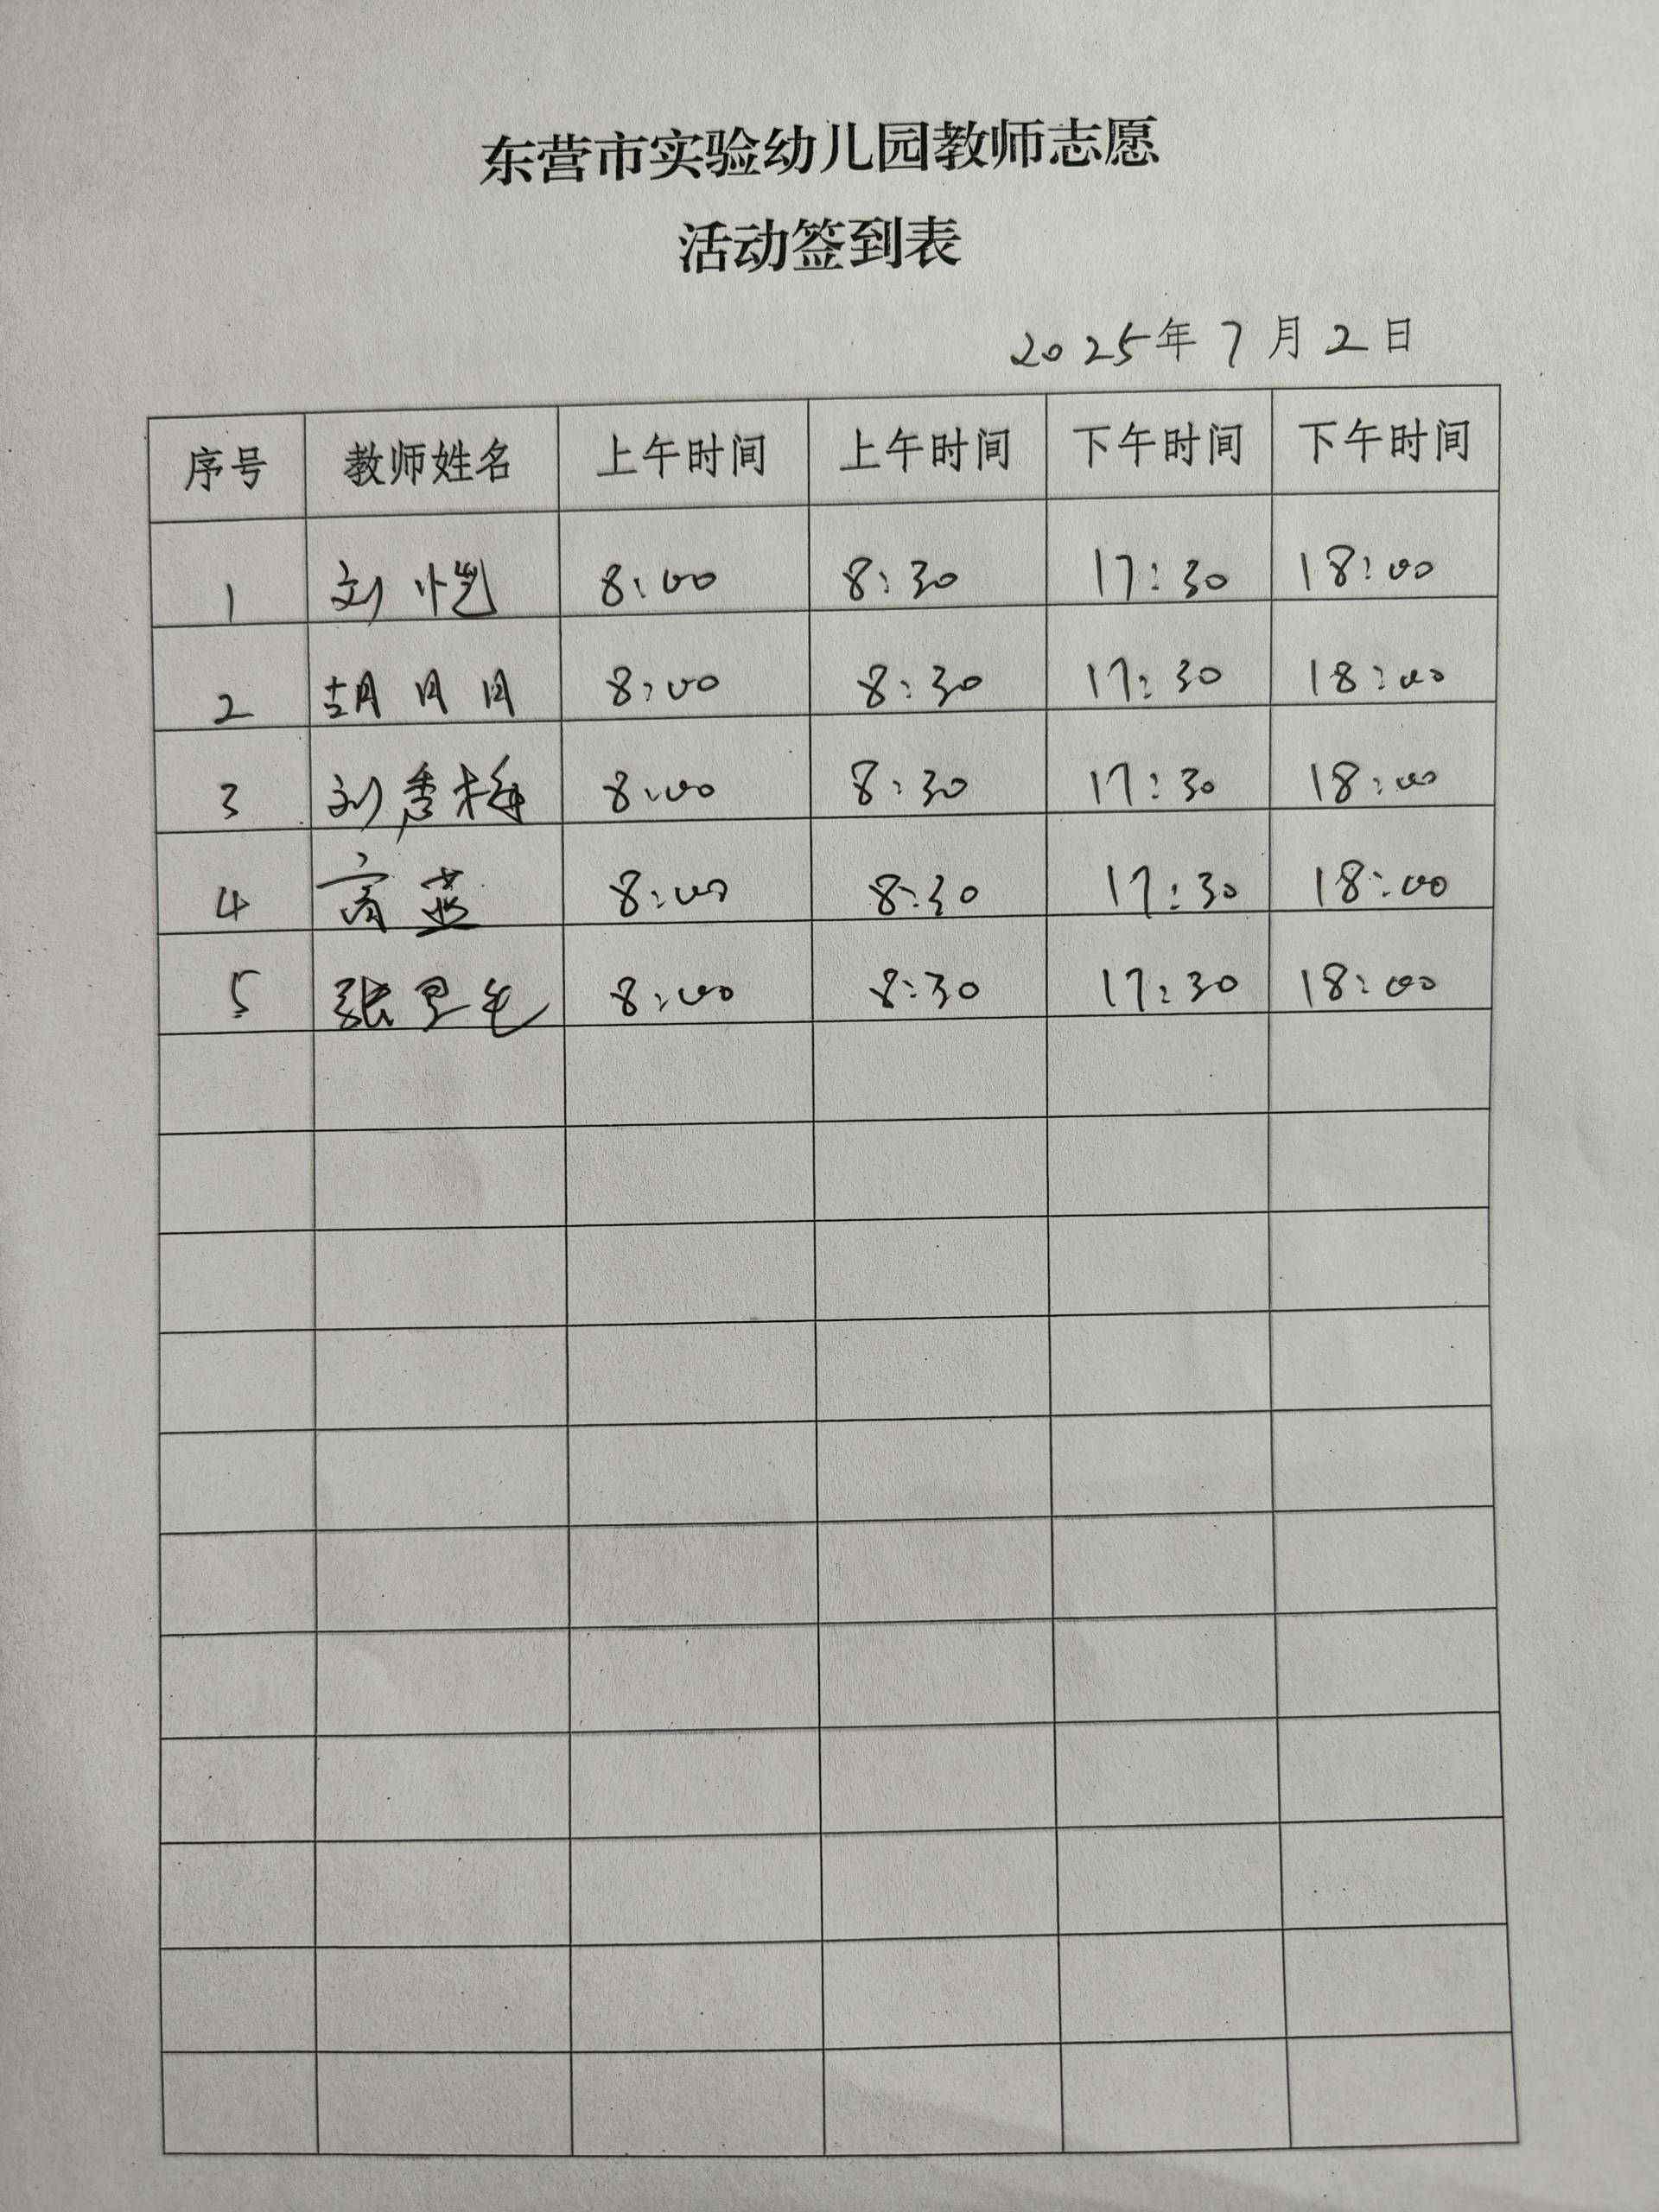 东营市实验幼儿园教师志愿
活动签到表
2025年7月2日
序号 教师姓名 上午时间 上午时间 下午时间 下午时间
1 刘恺 8:00 8:30 17:30 18:00
2 胡月月 8:00 8:30 17:30 18:00
3 刘秀梅 8:00 8:30 17:30 18:00
4 高燕 8:00 8:30 17:30 18:00
5 张 8:00 8:30 17:30 18:00